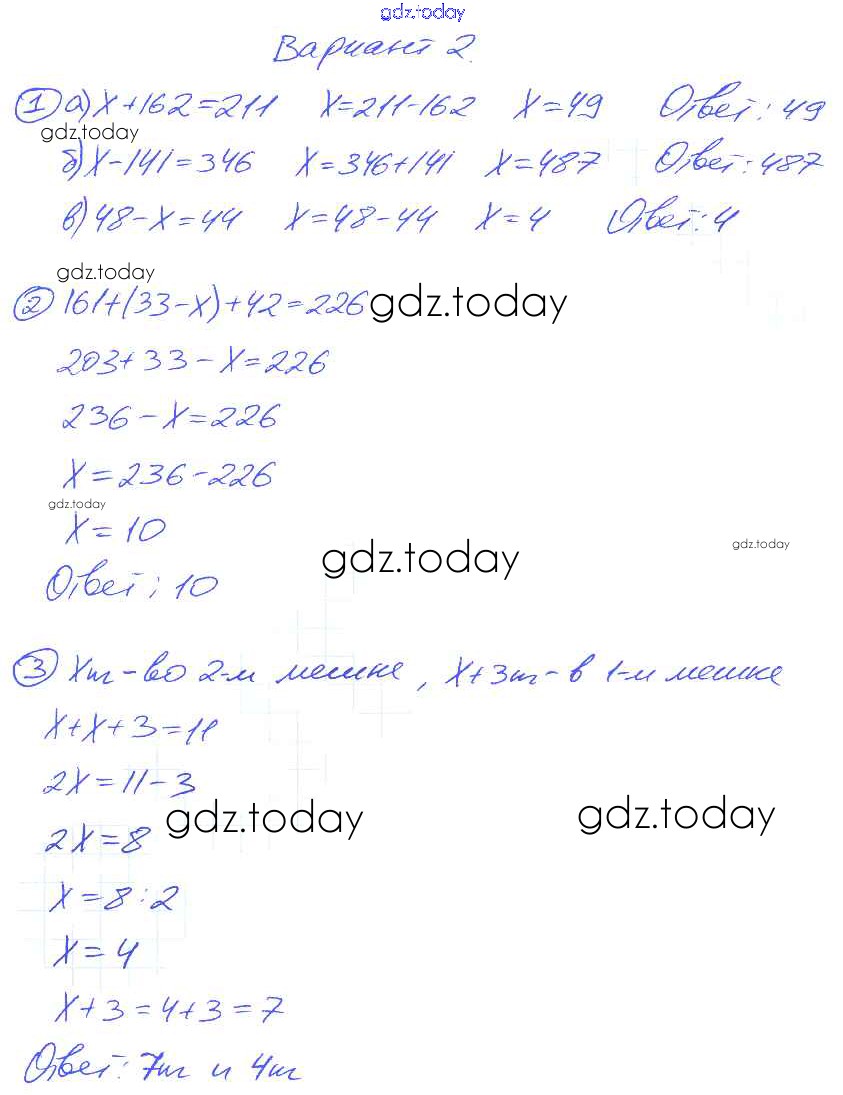 gdz.today
Вариант 2.
1 а) x+162=211 x=211-162 x=49 Ответ: 49
gdz.today
б) x-141=346 x=346+141 x=487 Ответ: 487
в) 48-x=44 x=48-44 x=4 Ответ: 4
gdz.today
2 161+(33-x)+42=226 gdz.today
203+33-x=226
236-x=226
x=236-226
gdz.today
x=10
gdz.today gdz.today
Ответ: 10
3 xт - во 2-м мешке, x+3т - в 1-м мешке
x+x+3=11
2x=11-3
gdz.today gdz.today
2x=8
x=8:2
x=4
x+3=4+3=7
Ответ: 7т и 4т